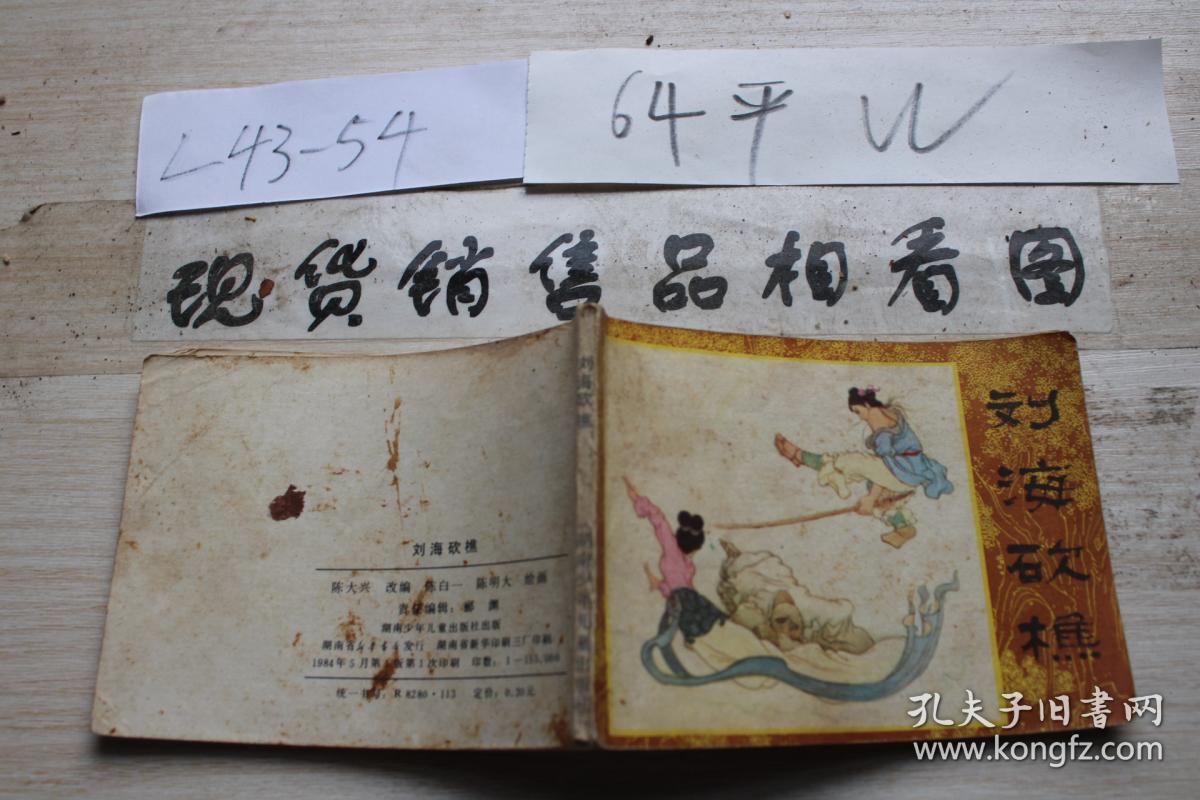 L43-54
64平
现货销售品相看图
刘海砍樵
刘海砍樵
刘海砍樵
陈大兴 改编 陈白一 陈明大 绘画
责任编辑：郦渊
湖南少年儿童出版社出版
湖南省新华书店发行 湖南省新华印刷三厂印刷
1984年5月第1版第1次印刷 印数：1—153,000
统一书号：R8280·113 定价：0.20元
孔夫子旧书网
www.kongfz.com